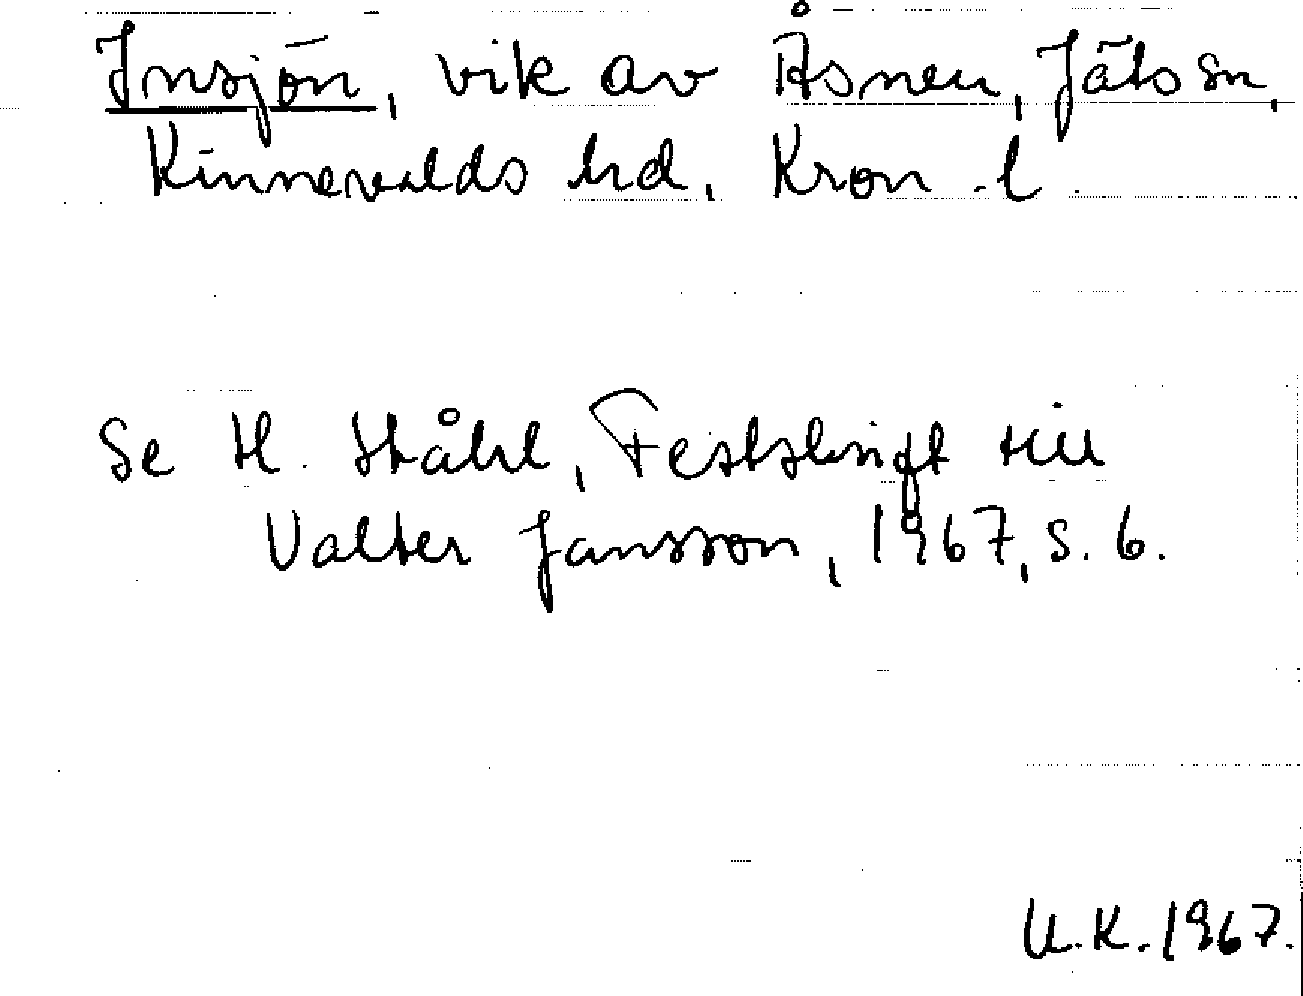 Insjön, vik av Åsnen, Jäts sn,
Kinnevalds hd, Kron. l.
Se H. Ståhl, Festskrift till
Valter Jansson, 1967, s. 6.
U.K. 1967.